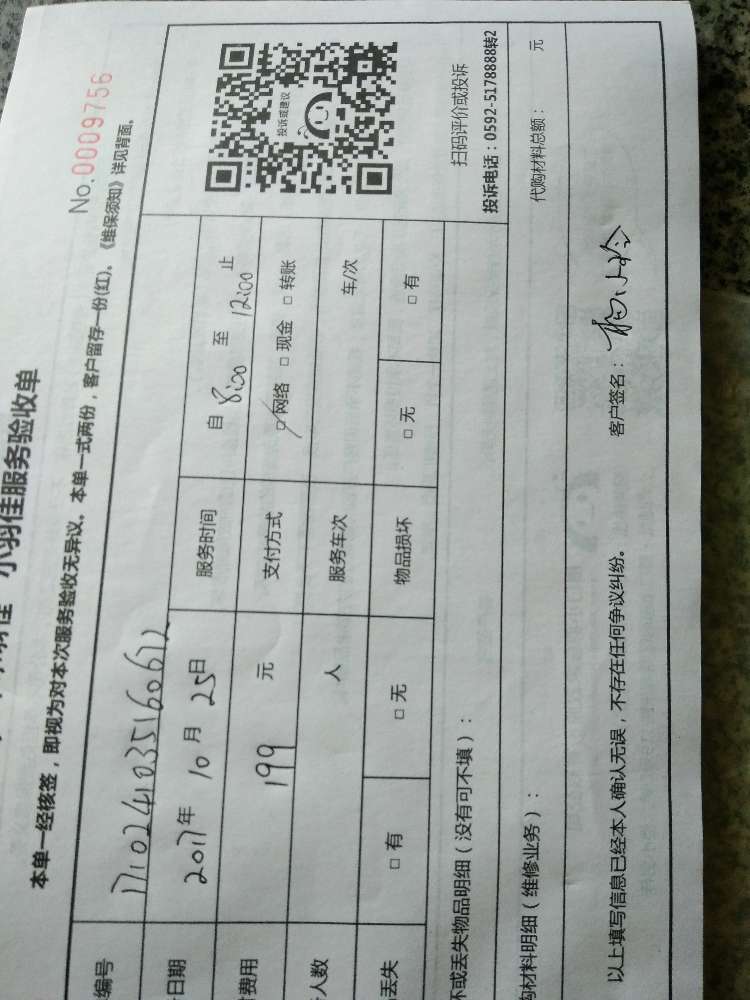 小羽佳服务验收单
No.0009756
本单一经核签，即视为对本次服务验收无异议。本单一式两份，客户留存一份(红)。《维保须知》详见背面。
编号 17102410351606 12
日期 2017年 10 月 25日 服务时间 自 8:00 至 12:00 止
费用 199 元 支付方式 □网络 □ 现金 □ 转账
人数 人 服务车次 车/次
丢失 □ 有 □ 无 物品损坏 □ 无 □ 有
投诉或建议
扫码评价或投诉
投诉电话：0592-5178888转2
坏或丢失物品明细（没有可不填）：
购材料明细（维修业务）： 代购材料总额： 元
以上填写信息已经本人确认无误，不存在任何争议纠纷。 客户签名：